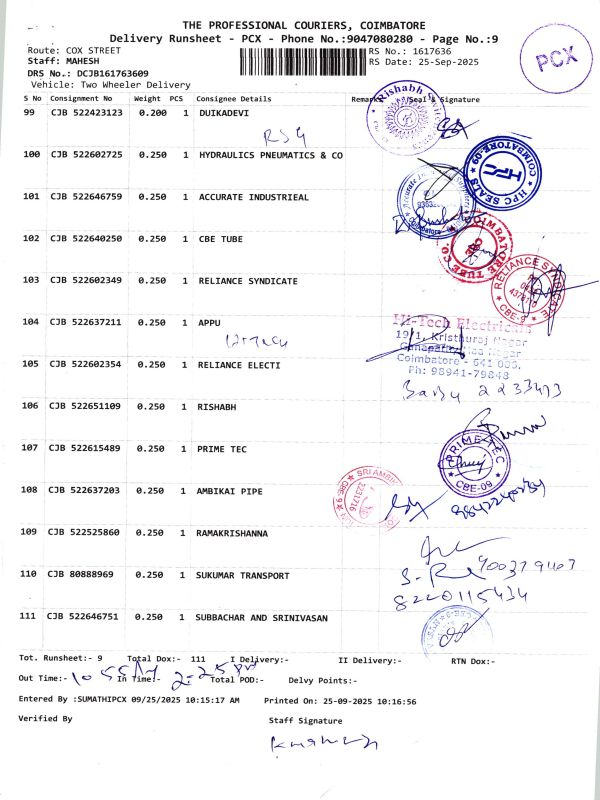 THE PROFESSIONAL COURIERS, COIMBATORE
Delivery Runsheet - PCX - Phone No.:9047080280 - Page No.:9
Route: COX STREET
RS No.: 1617636
Staff: MAHESH
RS Date: 25-Sep-2025
DRS No.: DCJB161763609
Vehicle: Two Wheeler Delivery
PCX
S No Consignment No Weight PCS Consignee Details Remarks /Seal & Signature
99 CJB 522423123 0.200 1 DUIKADEVI
Rishabh
100 CJB 522602725 0.250 1 HYDRAULICS PNEUMATICS & CO
COIMBATORE-09
HPC SEALS
101 CJB 522646759 0.250 1 ACCURATE INDUSTRIEAL
Accurate
Coimbatore
102 CJB 522640250 0.250 1 CBE TUBE
COIMBATORE TUBE CO.
CBE
103 CJB 522602349 0.250 1 RELIANCE SYNDICATE
RELIANCE SYNDICATE
CBE-9
104 CJB 522637211 0.250 1 APPU
Hi-Tech Electricals
19/1, Kristhuraj Nagar
Coimbatore - 641 006.
Ph: 98941-79848
105 CJB 522602354 0.250 1 RELIANCE ELECTI
Baby 2233473
106 CJB 522651109 0.250 1 RISHABH
107 CJB 522615489 0.250 1 PRIME TEC
PRIME TEC
CBE-09
108 CJB 522637203 0.250 1 AMBIKAI PIPE
SRI AMBIK
2231716
CBE-9
109 CJB 522525860 0.250 1 RAMAKRISHANNA
110 CJB 80888969 0.250 1 SUKUMAR TRANSPORT
8220115434
111 CJB 522646751 0.250 1 SUBBACHAR AND SRINIVASAN
Tot. Runsheet:- 9 Total Dox:- 111 I Delivery:- II Delivery:- RTN Dox:-
Out Time:- 10 55AM In Time:- 2-25 PM Total POD:- Delvy Points:-
Entered By :SUMATHIPCX 09/25/2025 10:15:17 AM Printed On: 25-09-2025 10:16:56
Verified By Staff Signature